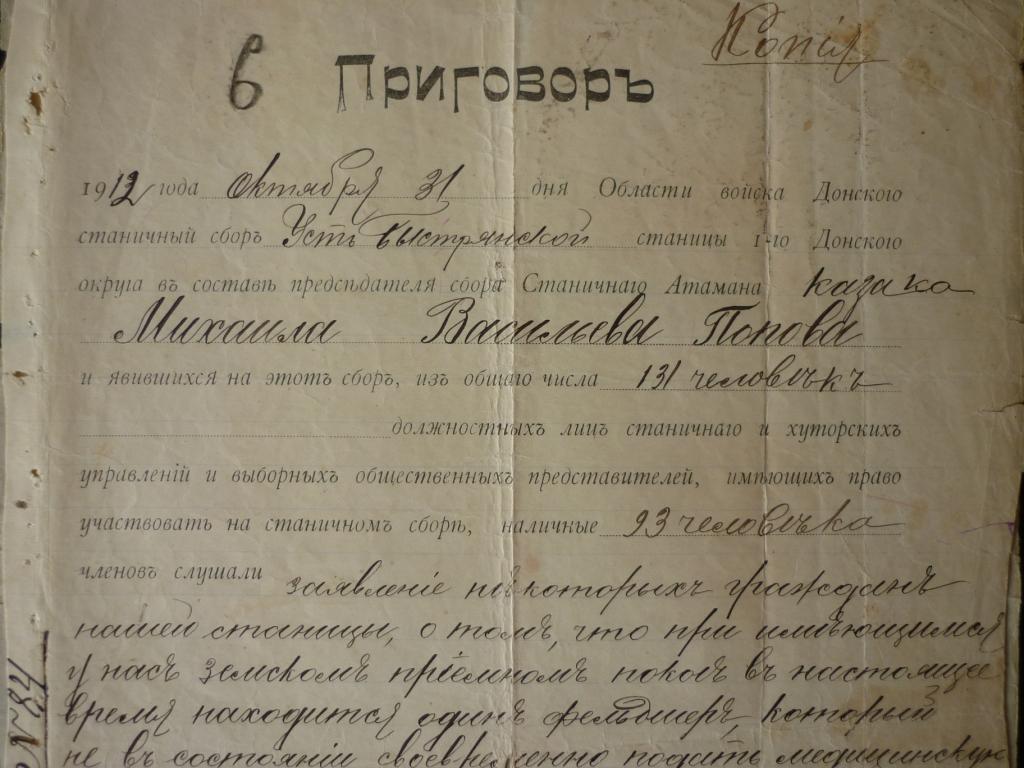 Копія
6 Приговоръ
1912 года Октября 31 дня Области войска Донского
станичный сборъ Усть Быстрянской станицы 1-го Донского
округа въ составѣ предсѣдателя сбора Станичнаго Атамана казака
Михаила Васильева Попова
и явившихся на этотъ сборъ, изъ общаго числа 131 человѣкъ
должностныхъ лицъ станичнаго и хуторскихъ
управленій и выборныхъ общественныхъ представителей, имѣющихъ право
участвовать на станичномъ сборѣ, наличные 93 человѣка
членовъ слушали заявленіе нѣкоторыхъ гражданъ
нашей станицы, о томъ, что при имѣющимся
у насъ земскомъ пріемномъ покоѣ въ настоящее
время находится одинъ фельдшеръ, который
не въ состояніи своевременно подать медицинскую
№ 84